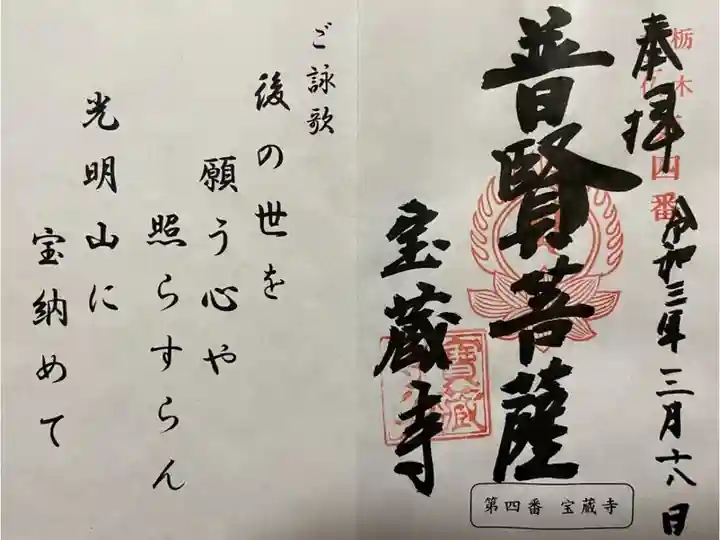 奉拝
令和三年三月十八日
普賢菩薩
宝蔵寺
栃木
四番
寶蔵
第四番 宝蔵寺
ご詠歌
後の世を
願う心や
照らすらん
光明山に
宝納めて